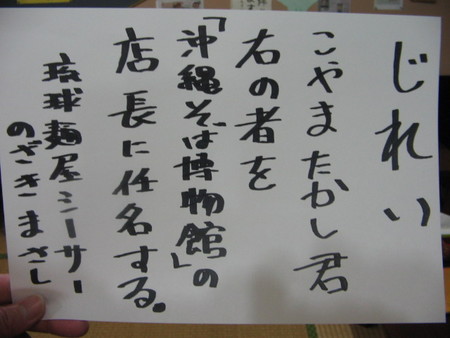 じれい
こやまたかし君
右の者を
「沖縄そば博物館」の
店長に任名する。
琉球麺屋シーサー
のざきまさし